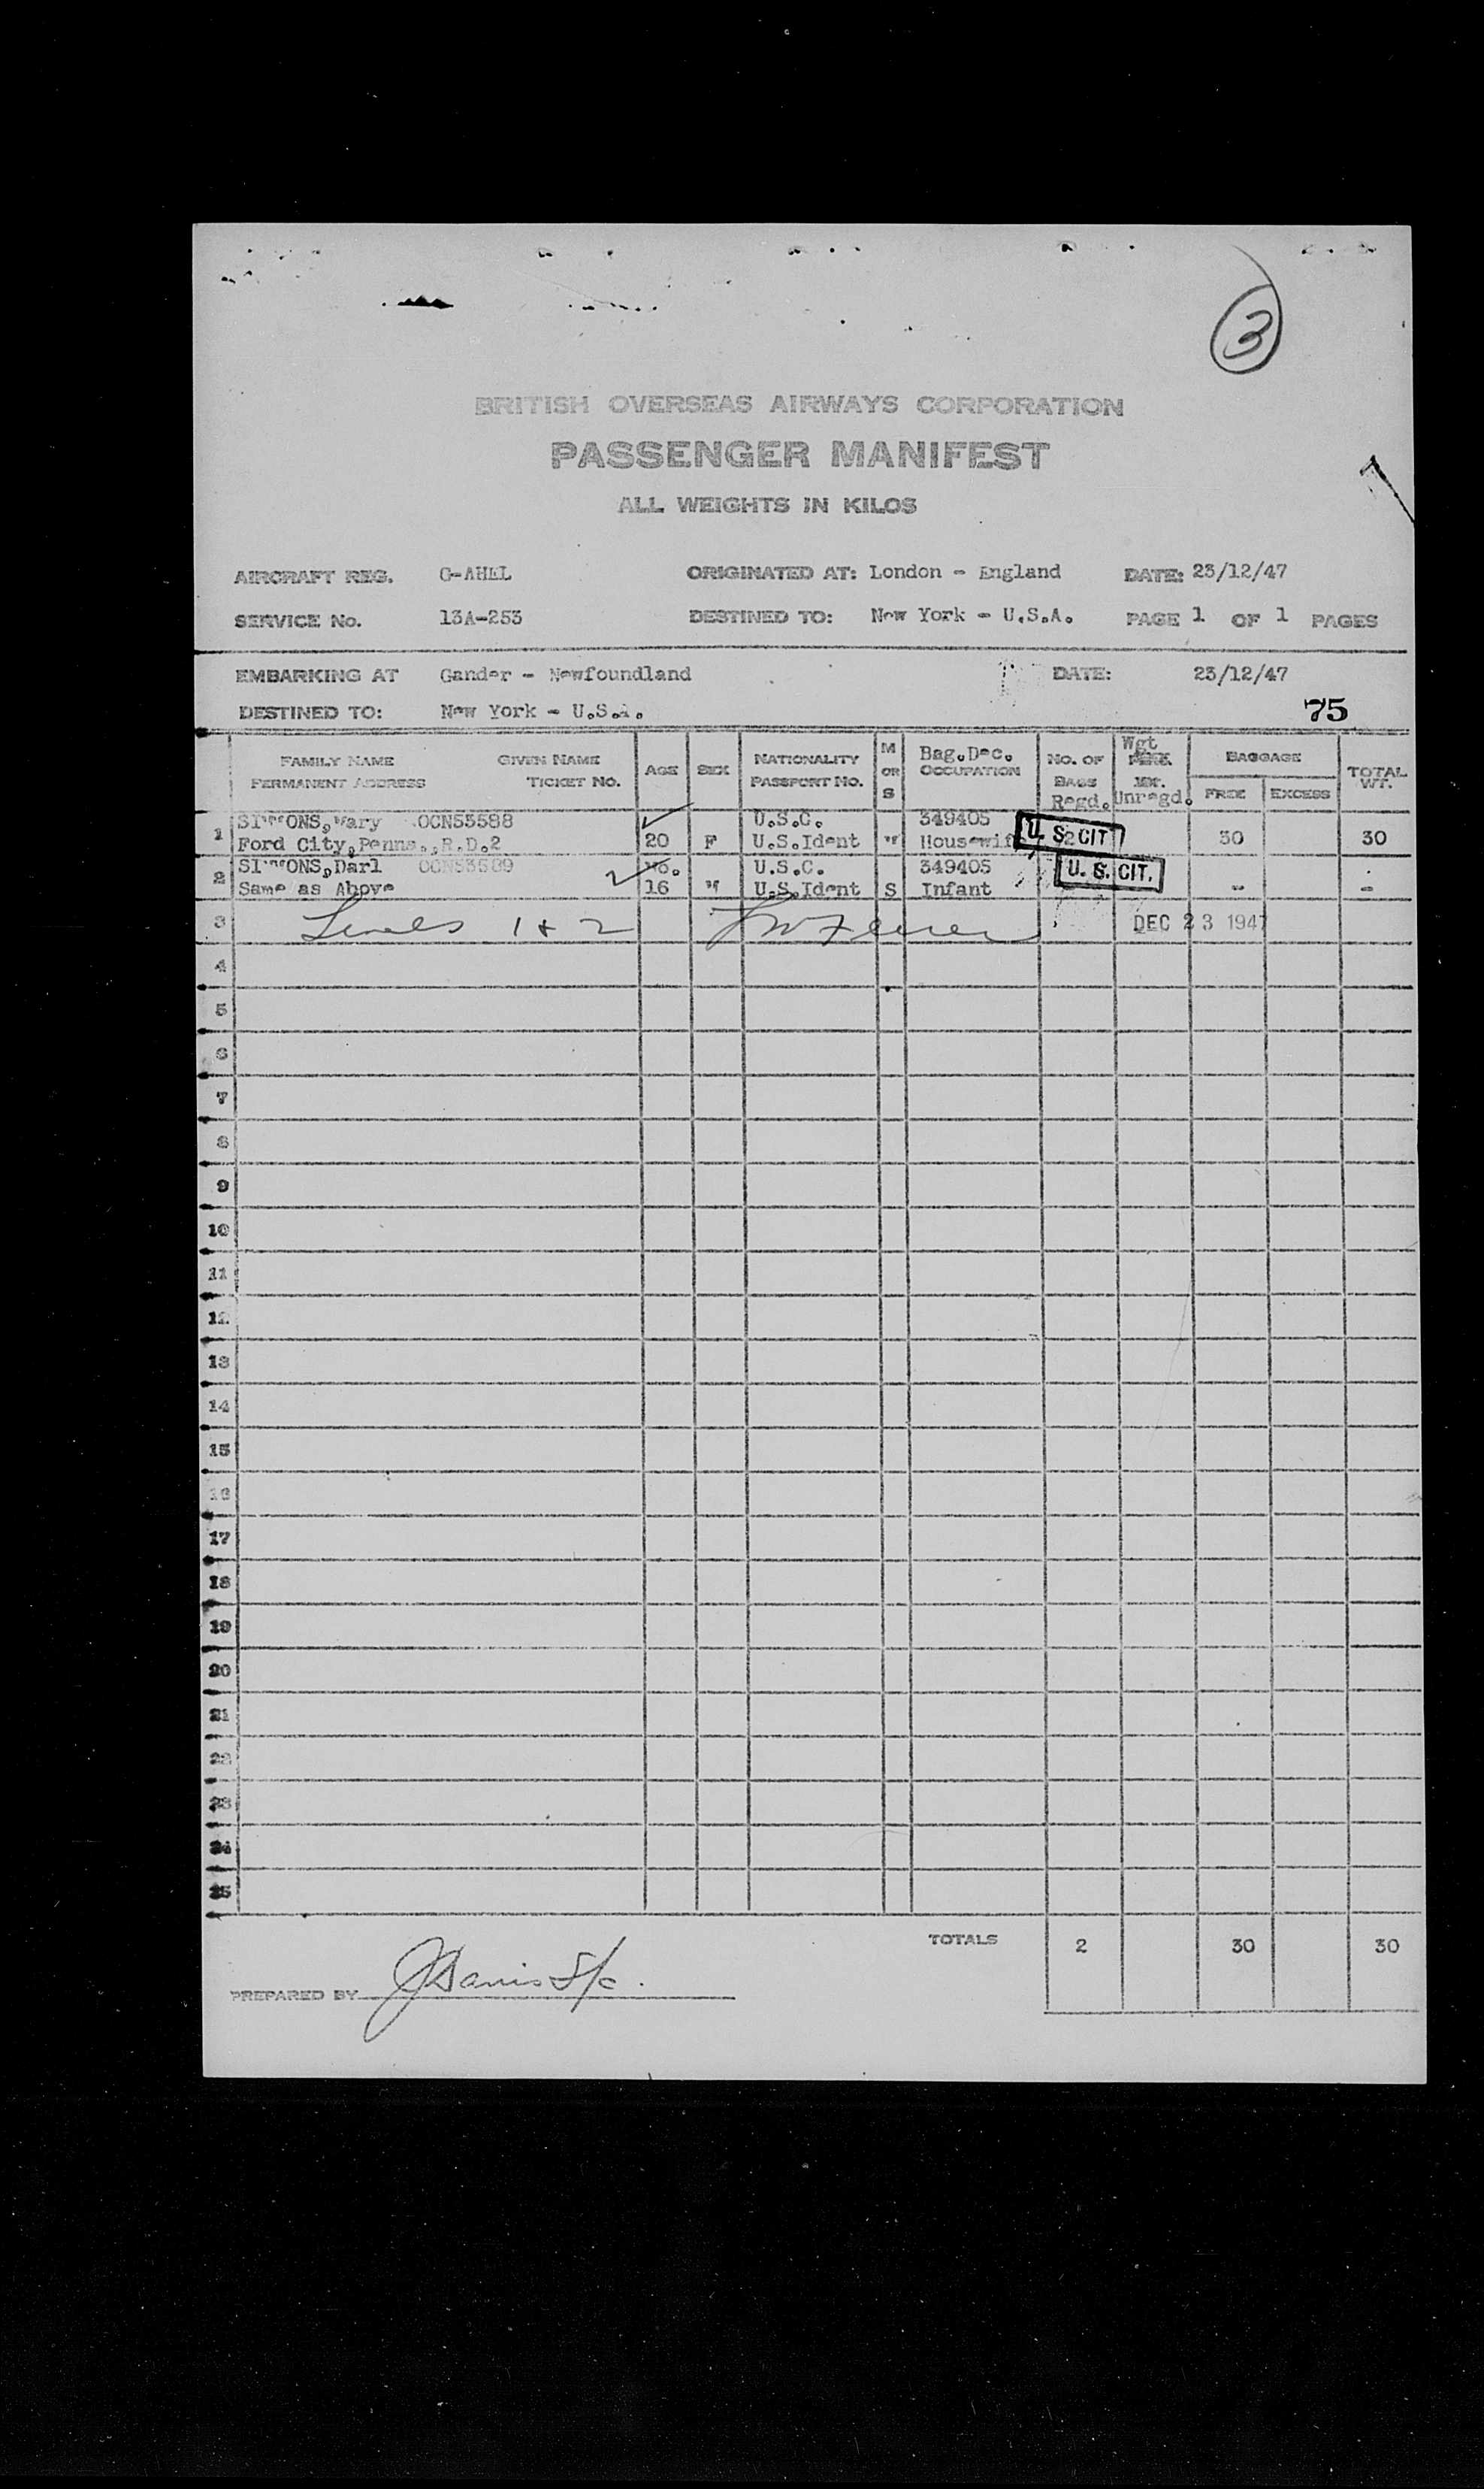 3
BRITISH OVERSEAS AIRWAYS CORPORATION
PASSENGER MANIFEST
ALL WEIGHTS IN KILOS
AIRCRAFT REG. G-AHEL ORIGINATED AT: London - England DATE: 23/12/47
SERVICE No. 13A-253 DESTINED TO: New York - U.S.A. PAGE 1 OF 1 PAGES
EMBARKING AT Gander - Newfoundland DATE: 23/12/47
DESTINED TO: New York - U.S.A.
75
FAMILY NAME GIVEN NAME AGE SEX NATIONALITY M OR S Bag.Dec. NO. OF Wgt BAGGAGE TOTAL WT.
PERMANENT ADDRESS TICKET NO. PASSPORT NO. OCCUPATION BAGS Regd. Unregd. FREE EXCESS
1 SIMMONS,Mary OCN53588 U.S.C. 349405
Ford City,Penna.,R.D.2 20 F U.S.Ident M Housewife 2 30 30
U. S. CIT
2 SIMMONS,Darl OCN53589 Mo. U.S.C. 349405
Same as Above 16 M U.S.Ident S Infant - -
U. S. CIT.
3 Lines 1 & 2 DEC 23 1947
4
5
6
7
8
9
10
11
12
13
14
15
16
17
18
19
20
21
22
23
24
25
TOTALS 2 30 30
PREPARED BY J Davis S/c.